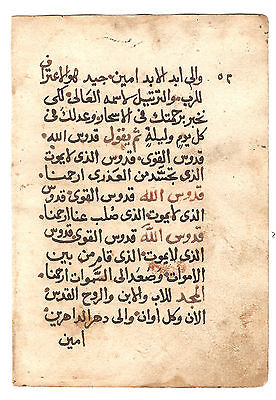 ٥٣
والى ابد الابد امين جيد هو الاعتراف
للرب والترتيل لاسمه العالى لكى
نخبر برحمتك فى الاسحار وعدلك فى
كل يوم وليلة ثم يقول قدوس الله
قدوس القوى قدوس الذى لا يموت
الذى تجسد من العذرى ارحمنا
قدوس الله قدوس القوى قدوس
الذى لا يموت الذى صلب عنا ارحمنا
قدوس الله قدوس القوى قدوس
الذى لا يموت الذى قام من بين
الاموات وصعد الى السموات ارحمنا
المجد للاب والابن والروح القدس
الان وكل اوان والى دهر الداهرين
امين